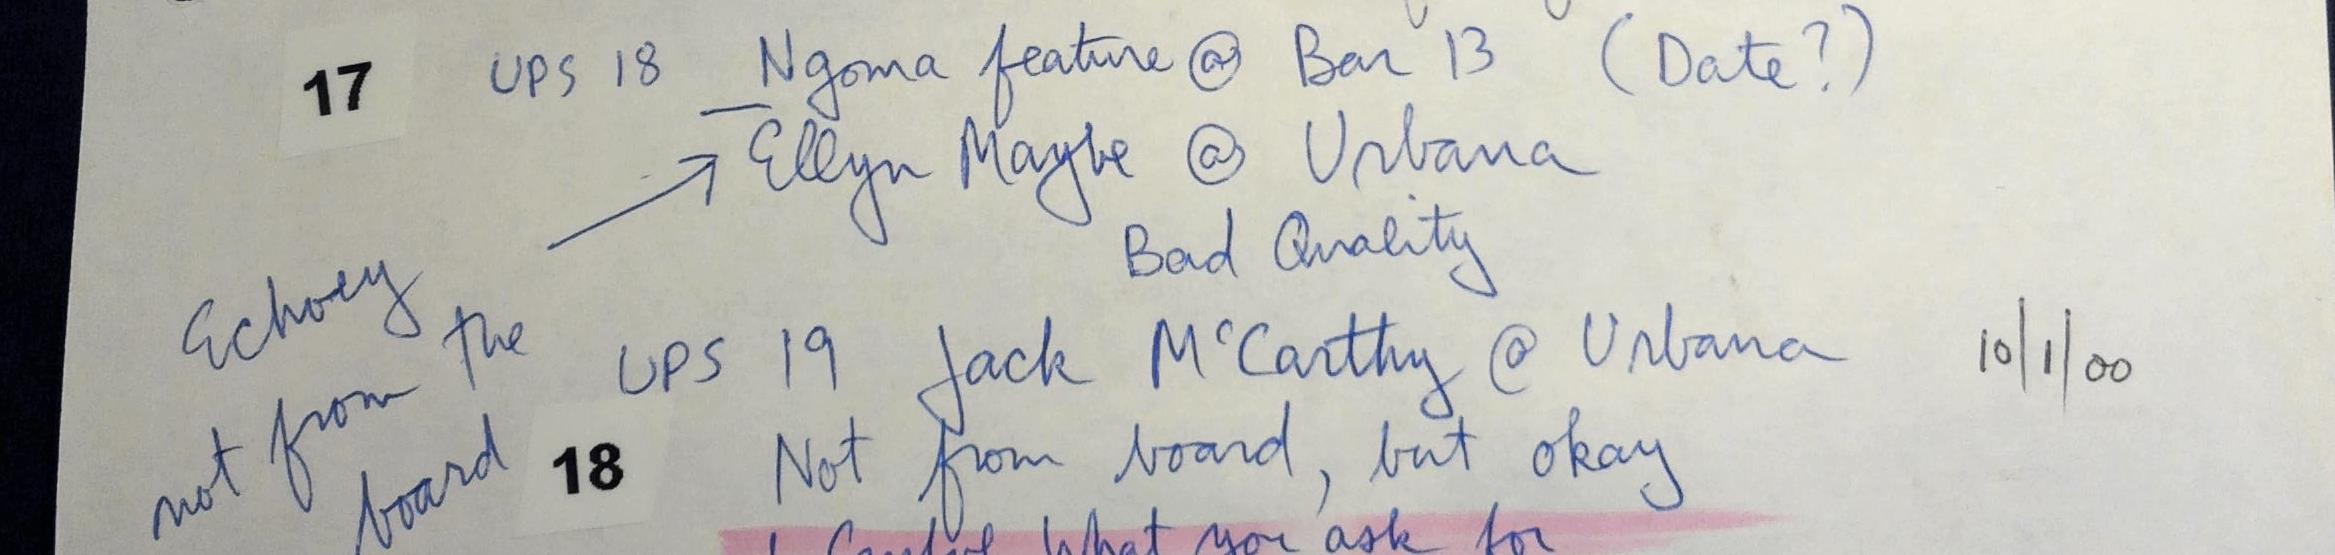 17 UPS 18 Ngoma feature @ Bar 13 (Date?)
Ellyn Maybe @ Urbana
Bad Quality
Echoey
not from the
board
UPS 19 Jack McCarthy @ Urbana 10/1/00
18 Not from board, but okay
Careful what you ask for